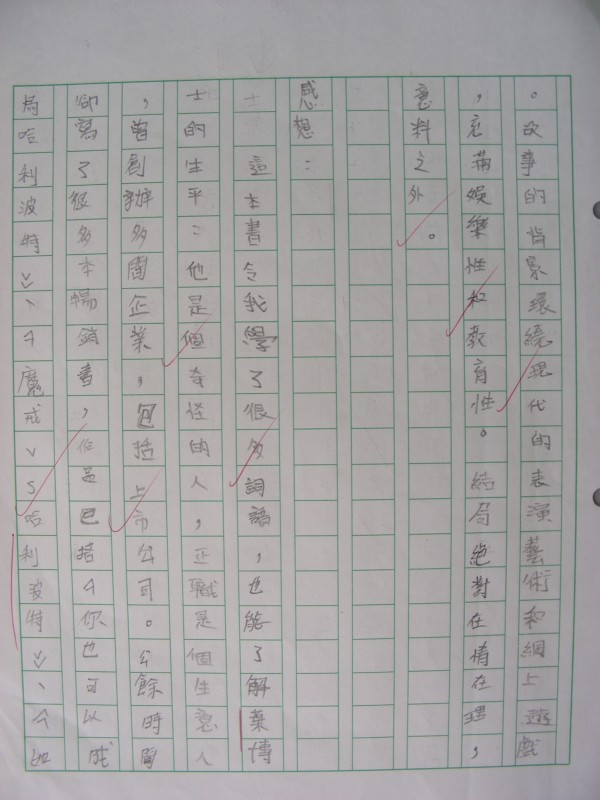 。故事的背景環繞現代的表演藝術和網上遊戲
，充滿娛樂性和教育性。結局絕對在情在理，
意料之外。
感想：
這本書令我學了很多詞語，也能了解葉博
士的生平：他是個奇怪的人，正職是個生意人
，曾創辦多間企業，包括上市公司。公餘時間
卻寫了很多本暢銷書，作品巴括《你也可以成
為哈利波特》、《魔戒VS哈利波特》、《如